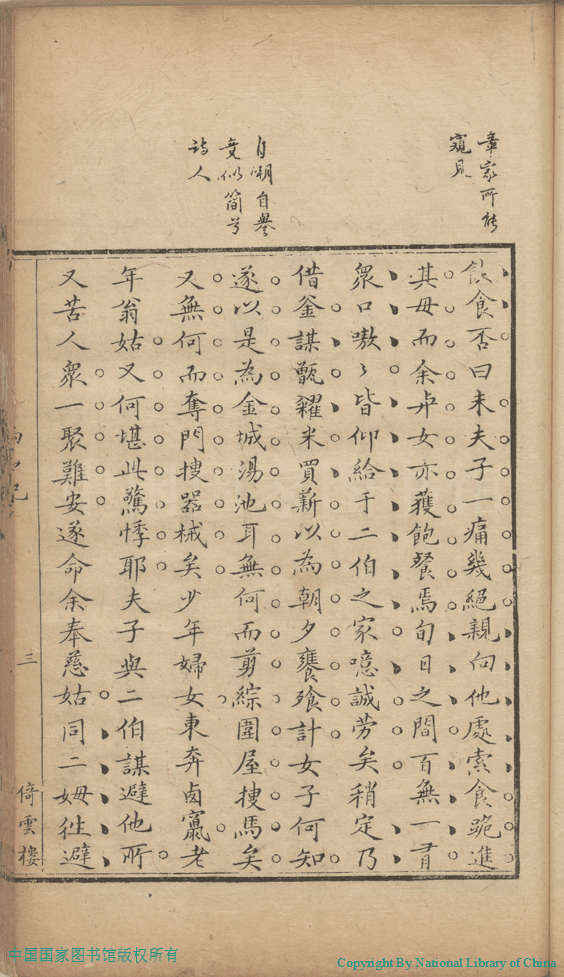 章家所能
窺見
自嘲自譽
竟似簡兮
詩人
飲食否曰未夫子一痛幾絕親向他處索食跪進
其母而余女亦獲飽餐焉旬日之間百無一有
衆口嗷〻皆仰給于二伯之家噫誠勞矣稍定乃
借釜謀甑糴米買薪以為朝夕饔飱計女子何知
遂以是為金城湯池耳無何而剪綜圍屋搜馬矣
又無何而奪門搜器械矣少年婦女東奔卤竄老
年翁姑又何堪此驚悸耶夫子與二伯謀避他所
又苦人衆一聚難安遂命余奉慈姑同二姆往避
三
倚雲樓
中国国家图书馆版权所有
Copyright By National Library of China